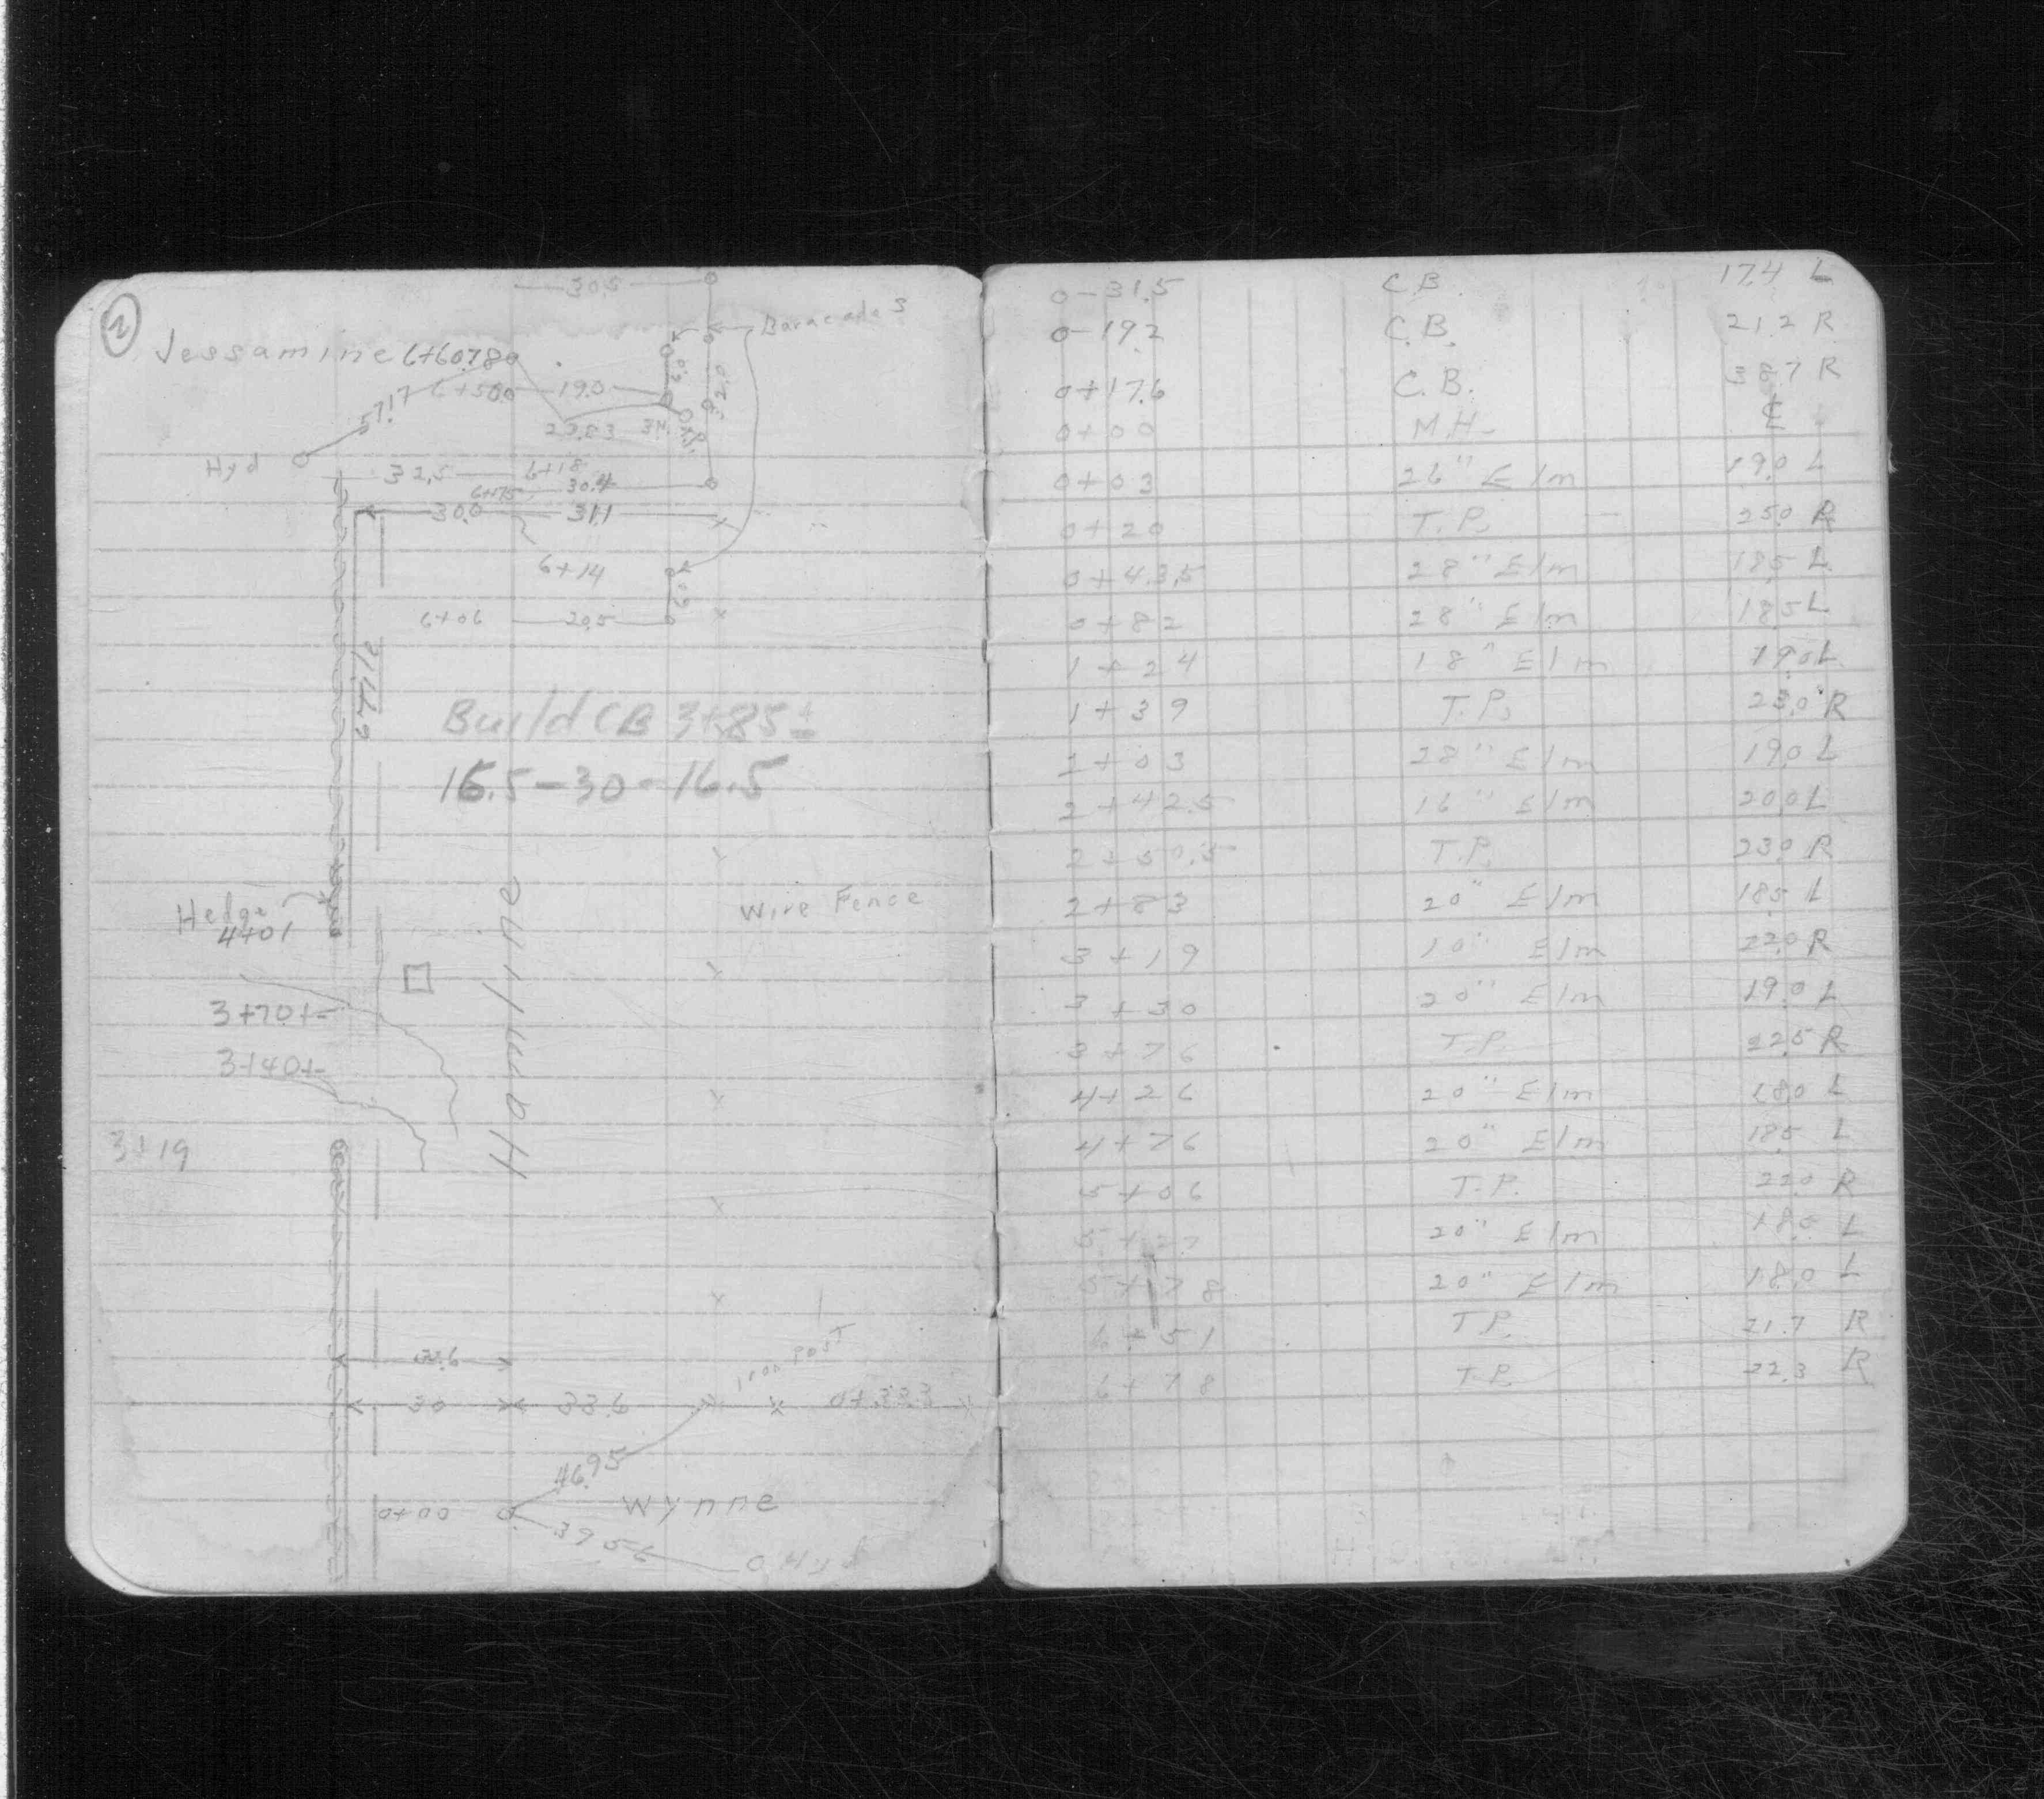 2
30.5
Baracade 3
Jessamine 6+60.78
57.17 6+50.0 19.0
Hyd 32.5 6+18
6+75 30.4
30.0 31.1
6+14
6+06 20.5
Build CB 3+85±
16.5-30-16.5
Hedge
4+01
Wire Fence
Hamline
3+70+-
3+40+-
3+19
Iron Post
30 33.6 0+33.3
46.95
0+00 Wynne
39.56 Hyd
0-31.5 C.B. 17.4 L
0-19.2 C.B. 21.2 R
0+17.6 C.B. 38.7 R
0+00 M.H. ℄
0+03 26" Elm 19.0 L
0+20 T.P. 25.0 R
0+43.5 28" Elm 18.5 L
0+82 28" Elm 18.5 L
1+24 18" Elm 19.0 L
1+39 T.P. 23.0 R
2+03 28" Elm 19.0 L
2+42.5 16" Elm 20.0 L
2+50.5 T.P. 23.0 R
2+83 20" Elm 18.5 L
3+19 10" Elm 22.0 R
3+30 20" Elm 19.0 L
3+76 T.P. 22.5 R
4+26 20" Elm 18.0 L
4+76 20" Elm 18.5 L
5+06 T.P. 22.0 R
5+27 20" Elm 18.0 L
5+78 20" Elm 18.0 L
6+51 T.P. 21.7 R
6+78 T.P. 22.3 R